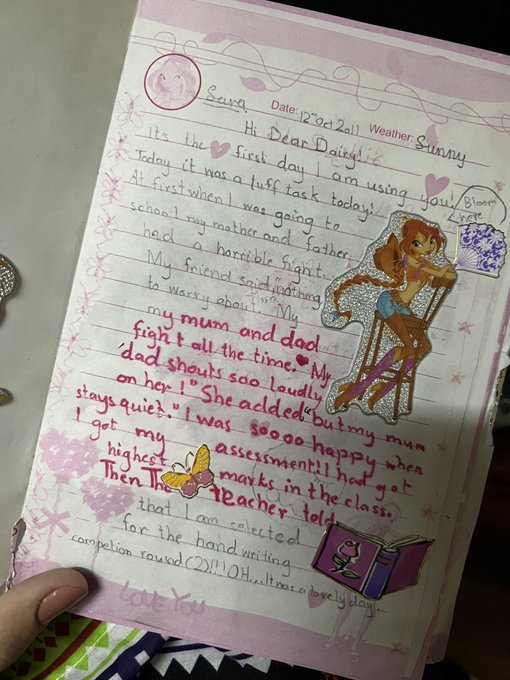 Sara Date: 12th Oct 2011 Weather: Sunny
Hi Dear Dairy!
It's the first day I am using you!
Today it was a tuff task today!
At first when I was going to
school my mother and father
had a horrible fight.
My friend said, "nothing
to worry about." "My
my mum and dad
fight all the time. My
dad shouts soo loudly
on her!" She added "but my mum
stays quiet." I was soooo happy when
I got my assessment! I had got
highest marks in the class.
Then The teacher told
that I am selected
for the handwriting
competion round (2)!!! OH... It was a lovely day.
Bloom
here
LOVE YOU